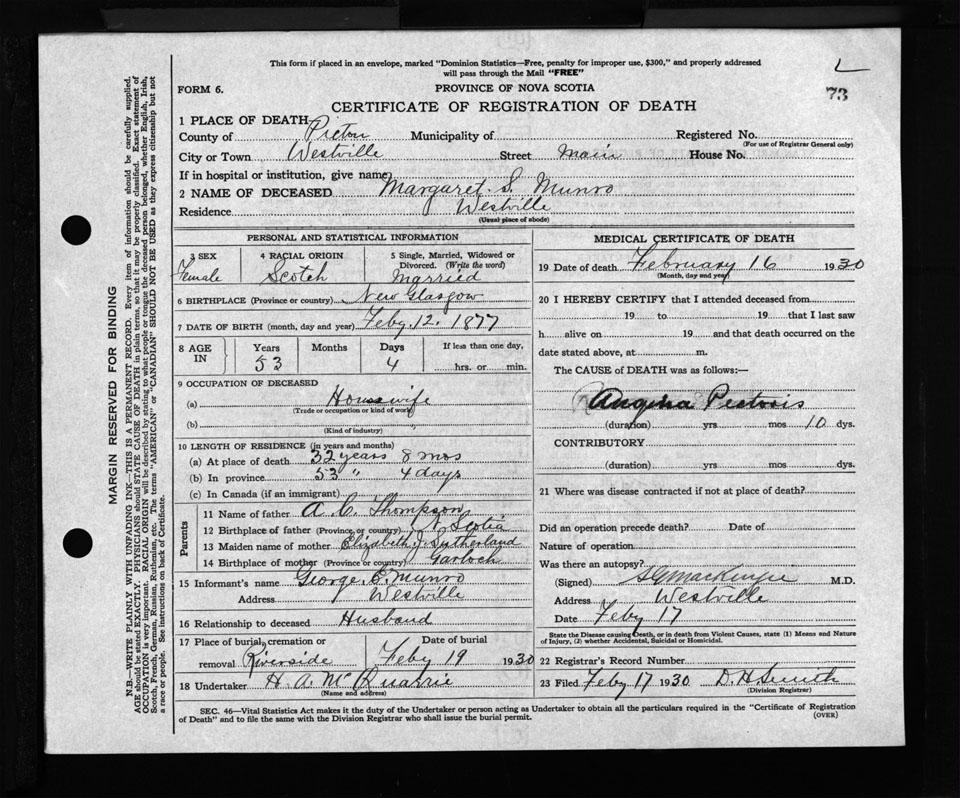 This form if placed in an envelope, marked "Dominion Statistics—Free, penalty for improper use, $300," and properly addressed
will pass through the Mail "FREE"
L
73
FORM 6.
PROVINCE OF NOVA SCOTIA
CERTIFICATE OF REGISTRATION OF DEATH
1 PLACE OF DEATH
County of Pictou Municipality of Registered No.
(For use of Registrar General only)
City or Town Westville Street Main House No.
If in hospital or institution, give name
2 NAME OF DECEASED Margaret S. Munro
Residence Westville
(Usual place of abode)
PERSONAL AND STATISTICAL INFORMATION
3 SEX 4 RACIAL ORIGIN 5 Single, Married, Widowed or
Divorced. (Write the word)
Female Scotch Married
6 BIRTHPLACE (Province or country) New Glasgow
7 DATE OF BIRTH (month, day and year) Feby. 12. 1877
8 AGE IN Years Months Days If less than one day,
53 4 hrs. or min.
9 OCCUPATION OF DECEASED
(a) Housewife
(Trade or occupation or kind of work)
(b)
(Kind of industry)
10 LENGTH OF RESIDENCE (in years and months)
(a) At place of death 32 years 8 mos
(b) In province 53 " 4 days
(c) In Canada (if an immigrant)
Parents
11 Name of father A. C. Thompson
12 Birthplace of father (Province or country) N Scotia
13 Maiden name of mother Elizabeth J. Sutherland
14 Birthplace of mother (Province or country) Garloch
15 Informant's name George E. Munro
Address Westville
16 Relationship to deceased Husband
17 Place of burial, cremation or Date of burial
removal Riverside Feby 19 1930
18 Undertaker H. A. McQuarrie
(Name and address)
MEDICAL CERTIFICATE OF DEATH
19 Date of death February 16 1930
(Month, day and year)
20 I HEREBY CERTIFY that I attended deceased from
19 to 19 that I last saw
h alive on 19 and that death occurred on the
date stated above, at m.
The CAUSE of DEATH was as follows:—
Angina Pectoris
(duration) yrs mos 10 dys.
CONTRIBUTORY
(duration) yrs. mos. dys.
21 Where was disease contracted if not at place of death?
Did an operation precede death? Date of
Nature of operation
Was there an autopsy?
(Signed) MacKenzie M.D.
Address Westville
Date Feby 17
State the Disease causing Death, or in death from Violent Causes, state (1) Means and Nature
of Injury, (2) whether Accidental, Suicidal or Homicidal.
22 Registrar's Record Number
23 Filed Feby 17 1930 D. H. Smith
(Division Registrar)
SEC. 46—Vital Statistics Act makes it the duty of the Undertaker or person acting as Undertaker to obtain all the particulars required in the "Certificate of Registration
of Death" and to file the same with the Division Registrar who shall issue the burial permit.
(OVER)
MARGIN RESERVED FOR BINDING
N.B.—WRITE PLAINLY WITH UNFADING INK—THIS IS A PERMANENT RECORD. Every item of information should be carefully supplied.
AGE should be stated EXACTLY. PHYSICIANS should STATE CAUSE OF DEATH in plain terms, so that it may be properly classified. Exact statement of
OCCUPATION is very important. RACIAL ORIGIN will be described by stating to what people or tongue the deceased person belonged, whether English, Irish,
Scotch, French, German, Russian, Ruthenian, etc. The terms "AMERICAN" or "CANADIAN" SHOULD NOT BE USED as they express citizenship but not
a race or people. See instructions on back of Certificate.